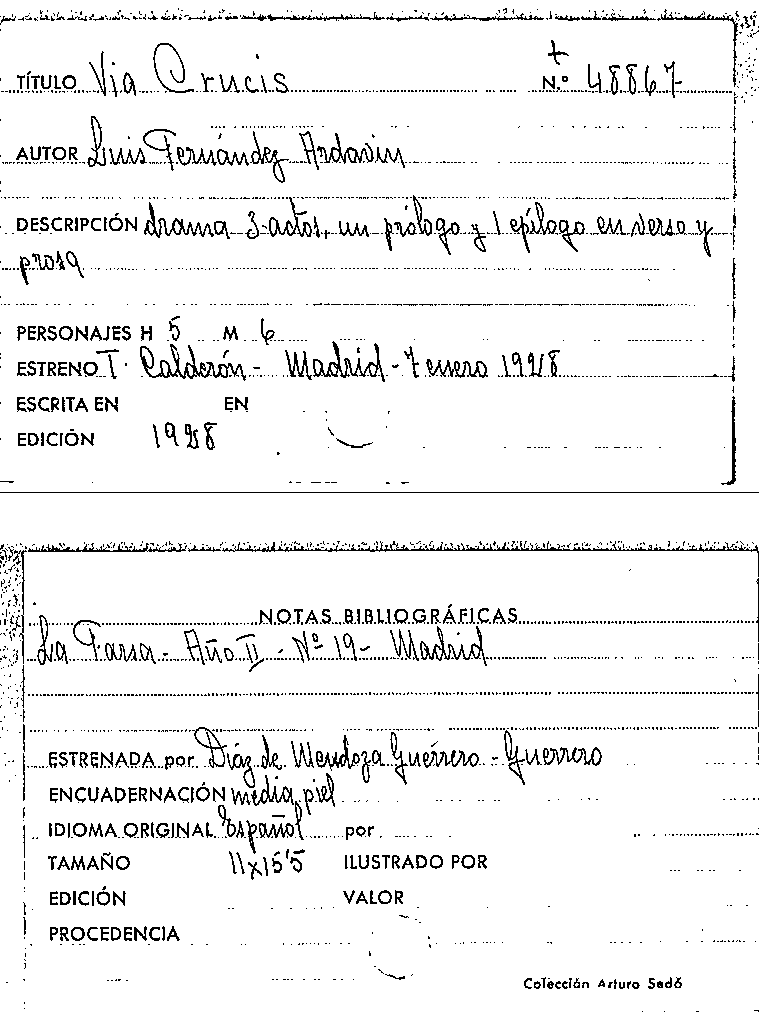 TÍTULO Via Crucis N.º 48867
AUTOR Luis Fernández Ardavin
DESCRIPCIÓN drama 3 actos, un prólogo y 1 epílogo en verso y
prosa
PERSONAJES H 5 M 6
ESTRENO T. Calderón - Madrid - 7 enero 1928
ESCRITA EN EN
EDICIÓN 1928
NOTAS BIBLIOGRÁFICAS
La Farsa - Año II - Nº 19 - Madrid
ESTRENADA por Díaz de Mendoza Guerrero - Guerrero
ENCUADERNACIÓN media piel
IDIOMA ORIGINAL Español por
TAMAÑO 11x15'5 ILUSTRADO POR
EDICIÓN VALOR
PROCEDENCIA
Colección Arturo Sedó